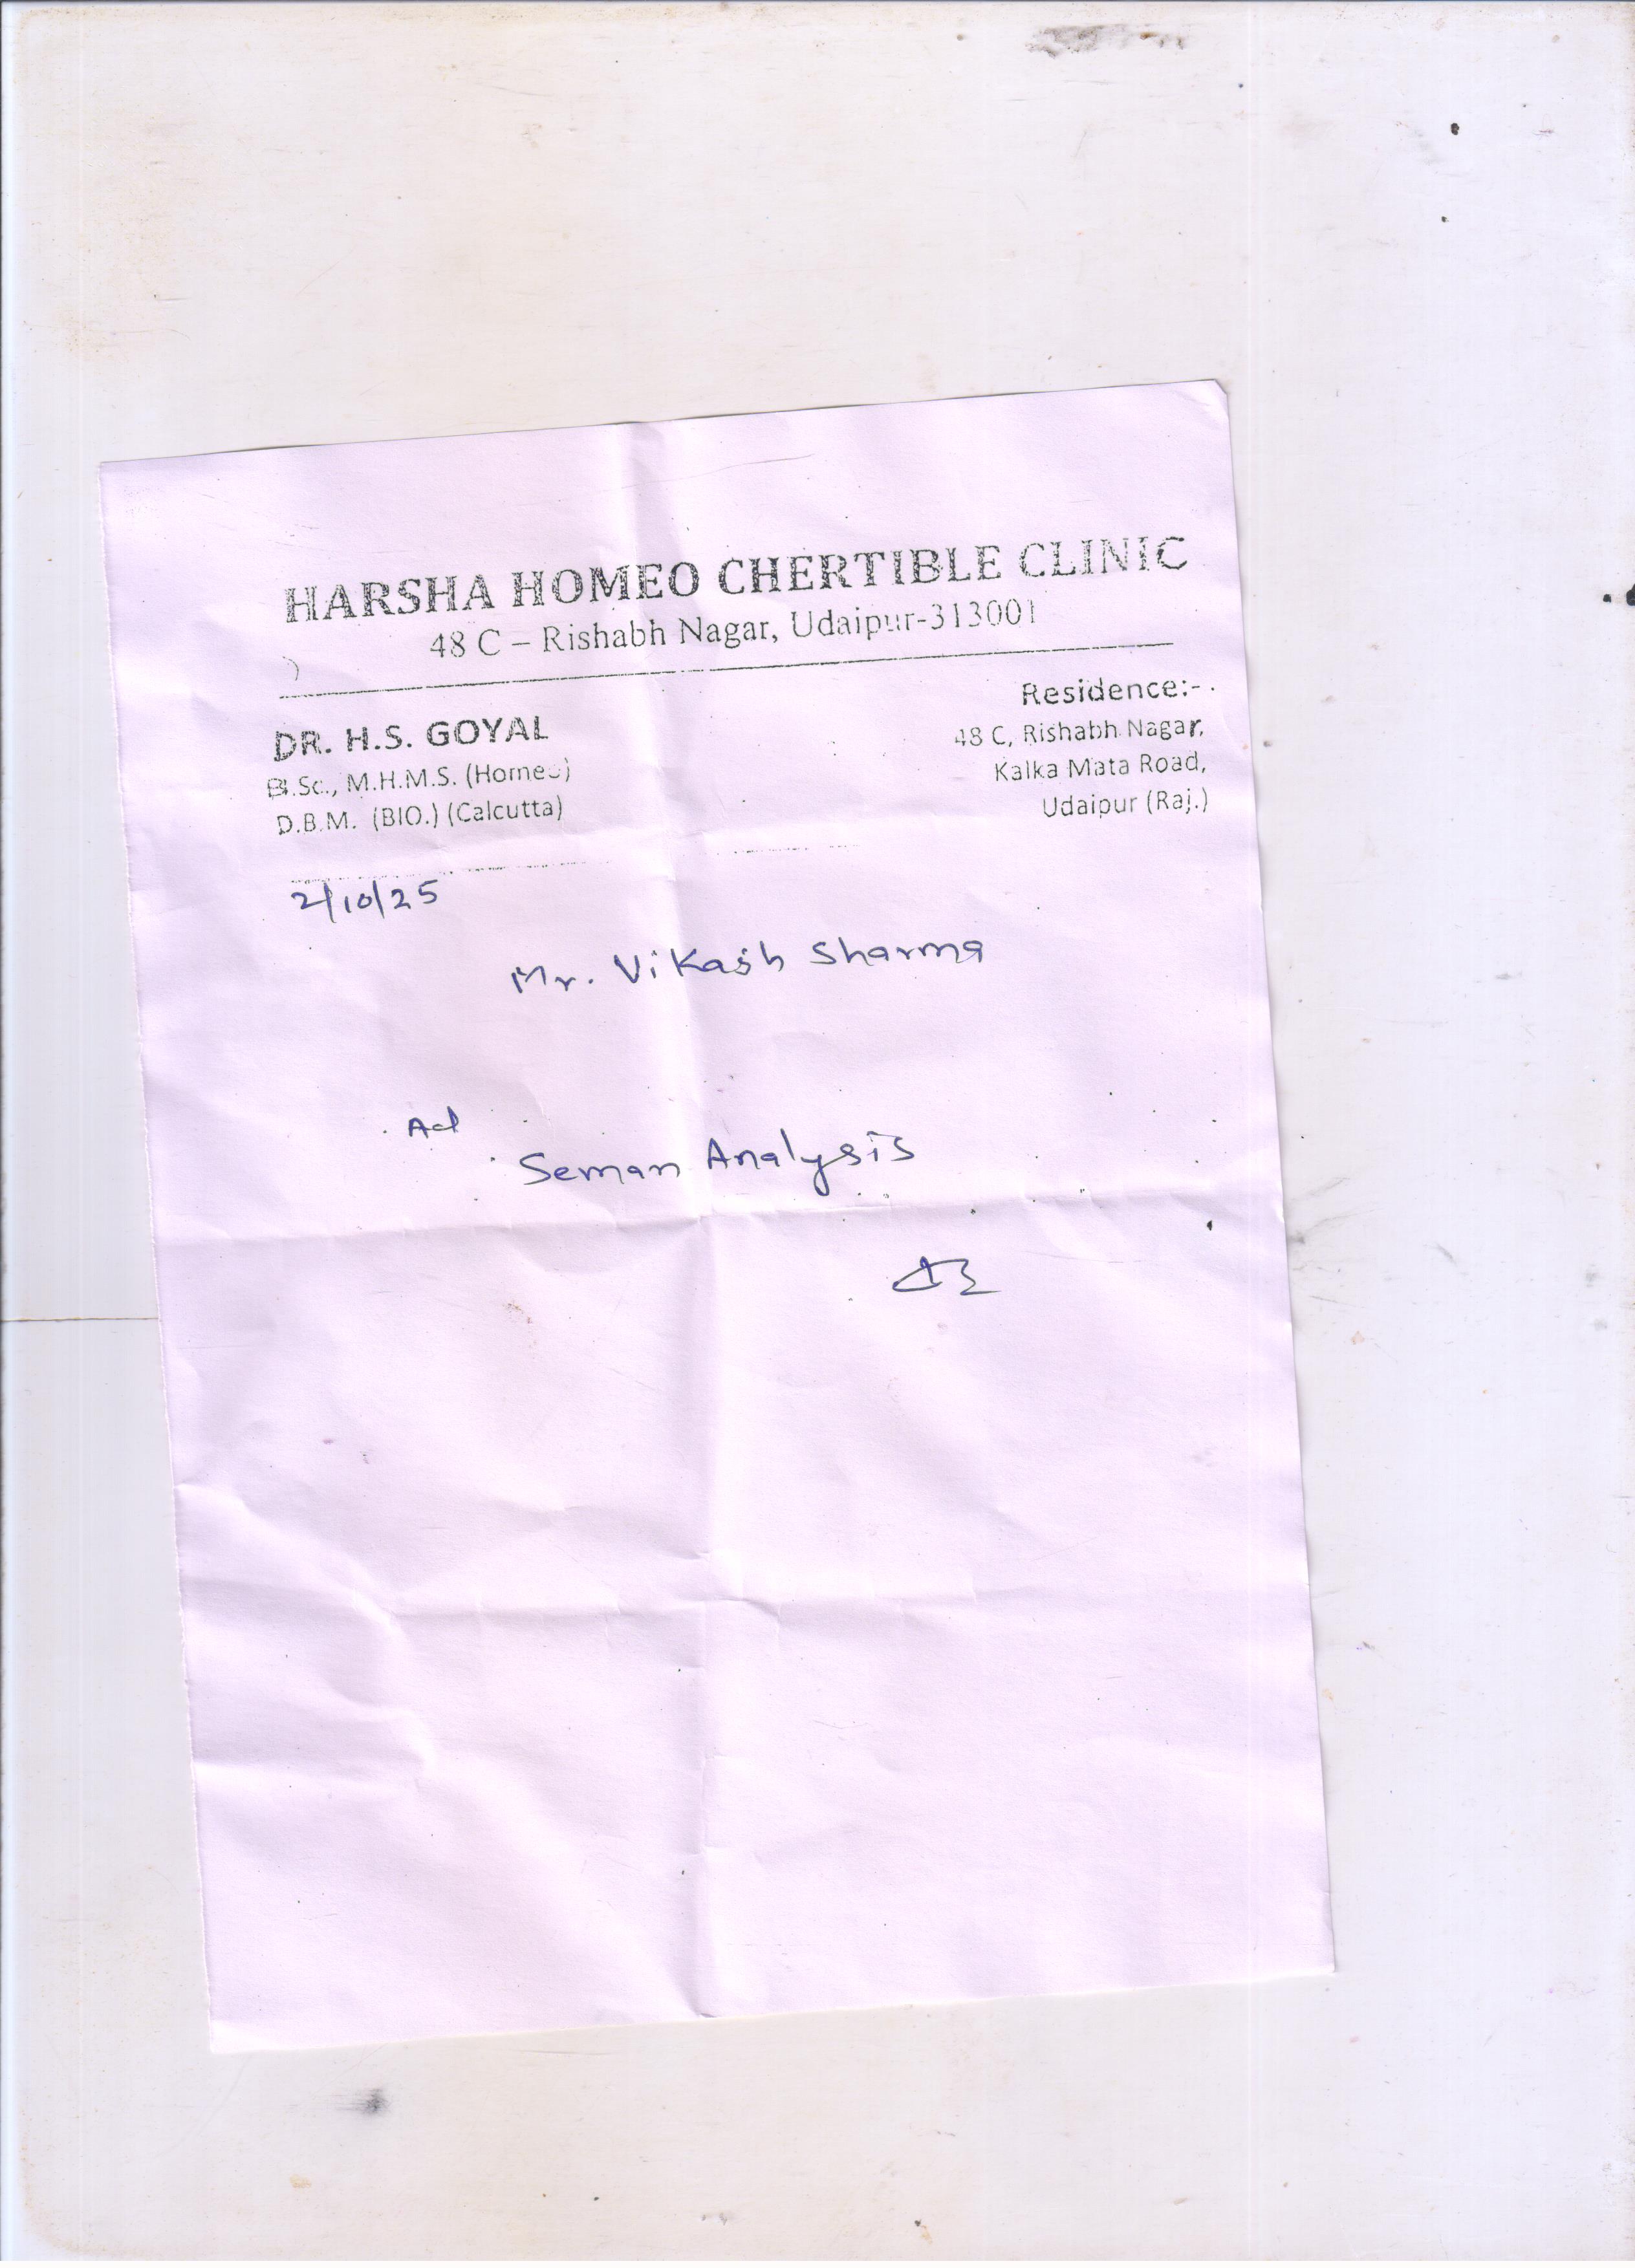 HARSHA HOMEO CHERTIBLE CLINIC
48 C – Rishabh Nagar, Udaipur-313001
DR. H.S. GOYAL
B.Sc., M.H.M.S. (Homeo)
D.B.M. (BIO.) (Calcutta)
Residence:-
48 C, Rishabh Nagar,
Kalka Mata Road,
Udaipur (Raj.)
2/10/25
Mr. Vikash Sharma
Ad
Seman Analysis